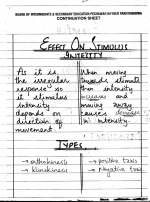 BOARD OF INTERMEDIATE & SECONDARY EDUCATION PESHAWAR
CONTINUATION SHEET
EFFECT ON STIMULUS
INTENSITY
As it is
the irregular
response so
it stimulus
intensity
depends on
direction of
movement.
When moving
towards stimulus
then intensity
increases and
moving away
causes decrease
in intensity.
TYPES
→ orthokinesis
→ klinokinesis
→ positive taxis
→ Negative taxis